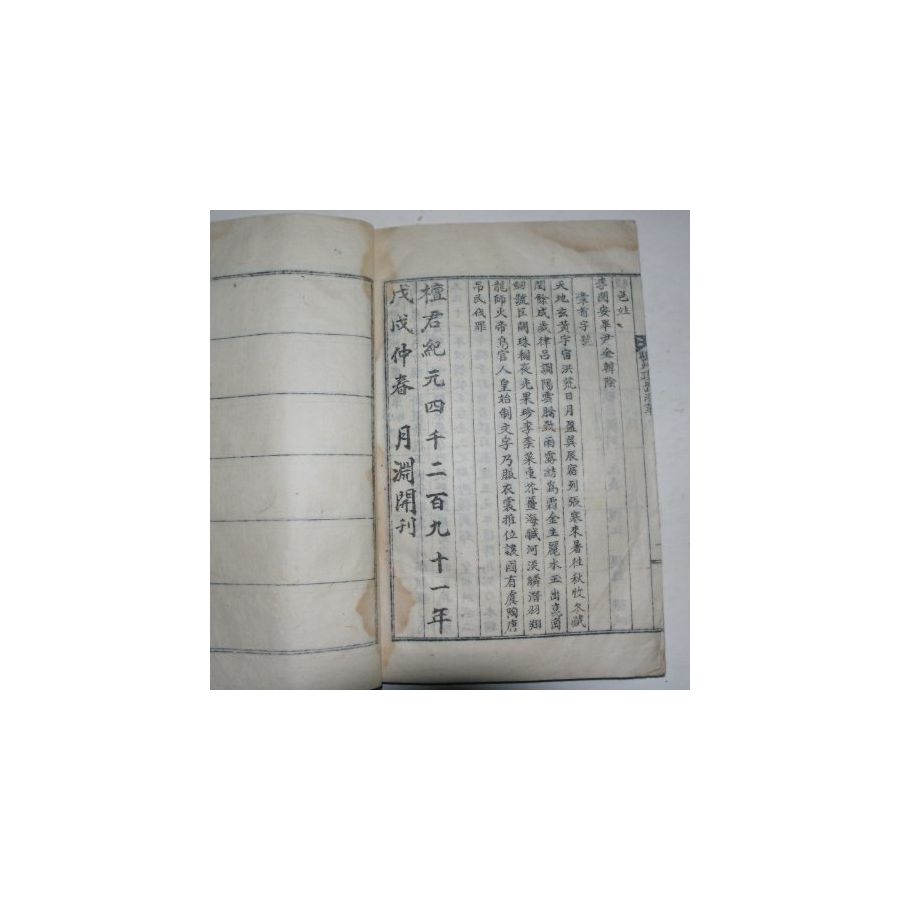 邑姓
李閔安皐尹金韓除
章首字號
天地玄黃宇宙洪荒日月盈昃辰宿列張寒來暑往秋收冬藏
閏餘成歲律呂調陽雲騰致雨露結爲霜金生麗水玉出崑岡
劒號巨闕珠稱夜光果珍李柰菜重芥薑海鹹河淡鱗潛羽翔
龍師火帝鳥官人皇始制文字乃服衣裳推位讓國有虞陶唐
吊民伐罪
檀君紀元四千二百九十一年
戊戌仲春 月淵開刊